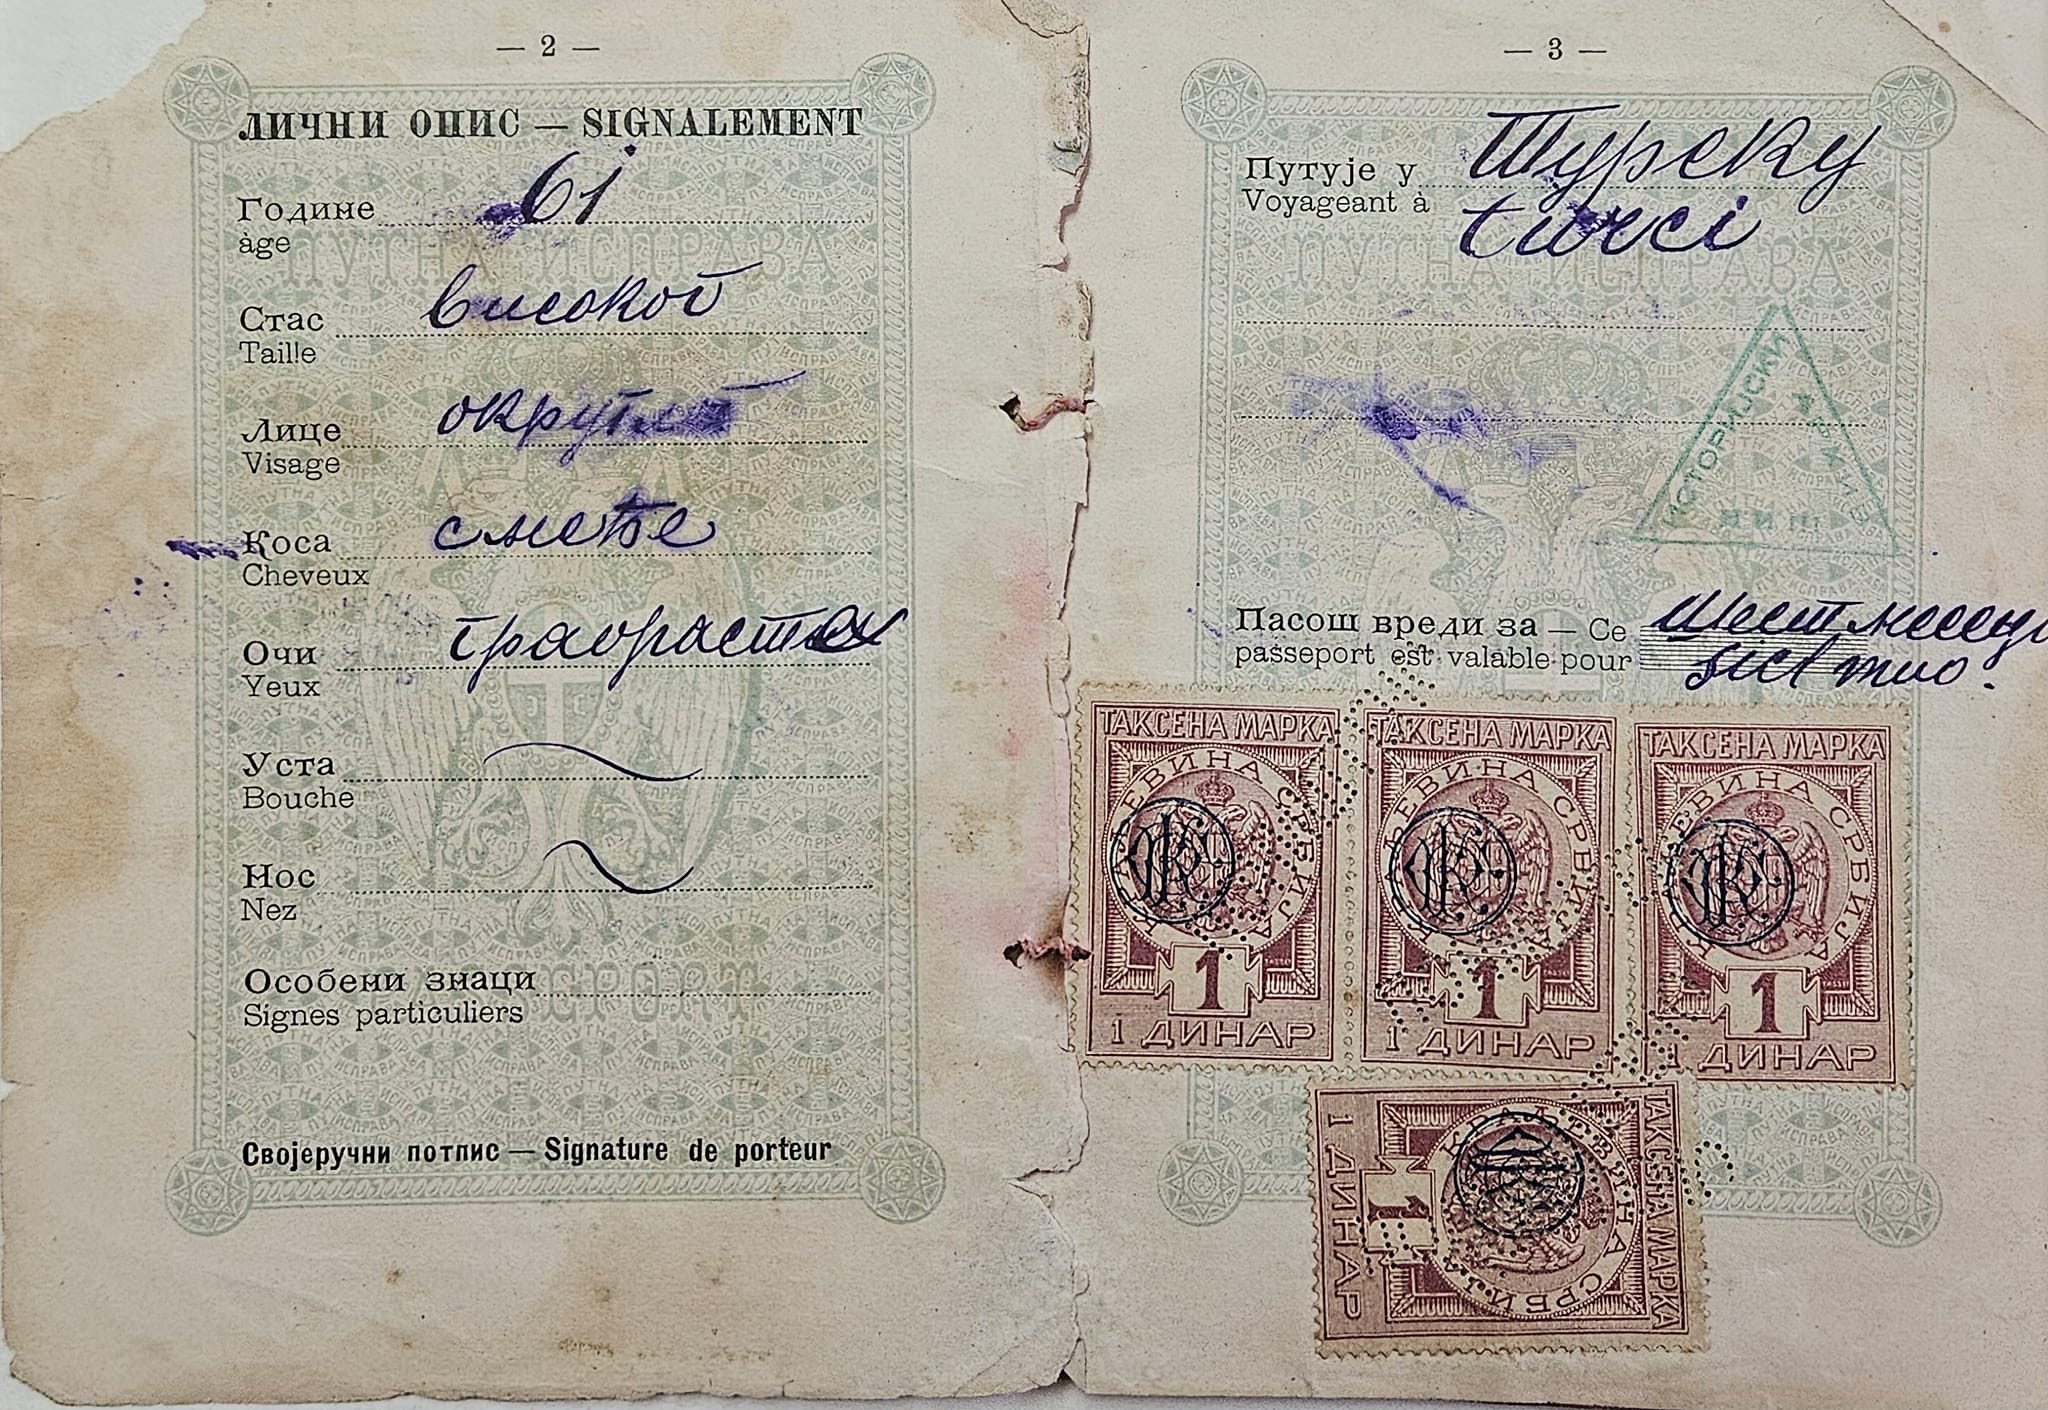 — 2 —
ЛИЧНИ ОПИС — SIGNALEMENT
Године 61
âge
Стас високог
Taille
Лице округло
Visage
Коса смеђе
Cheveux
Очи граорасте
Yeux
Уста
Bouche
Нос
Nez
Особени знаци
Signes particuliers
Својеручни потпис — Signature de porteur
— 3 —
Путује у Турску
Voyageant à turci
ИСТОРИЈСКИ АРХИВ
НИШ
Пасош вреди за — Ce шест месеци
passeport est valable pour
ТАКСЕНА МАРКА
КРАЉЕВИНА СРБИЈА
1
1 ДИНАР
ТАКСЕНА МАРКА
КРАЉЕВИНА СРБИЈА
1
1 ДИНАР
ТАКСЕНА МАРКА
КРАЉЕВИНА СРБИЈА
1
1 ДИНАР
ТАКСЕНА МАРКА
КРАЉЕВИНА СРБИЈА
1
1 ДИНАР